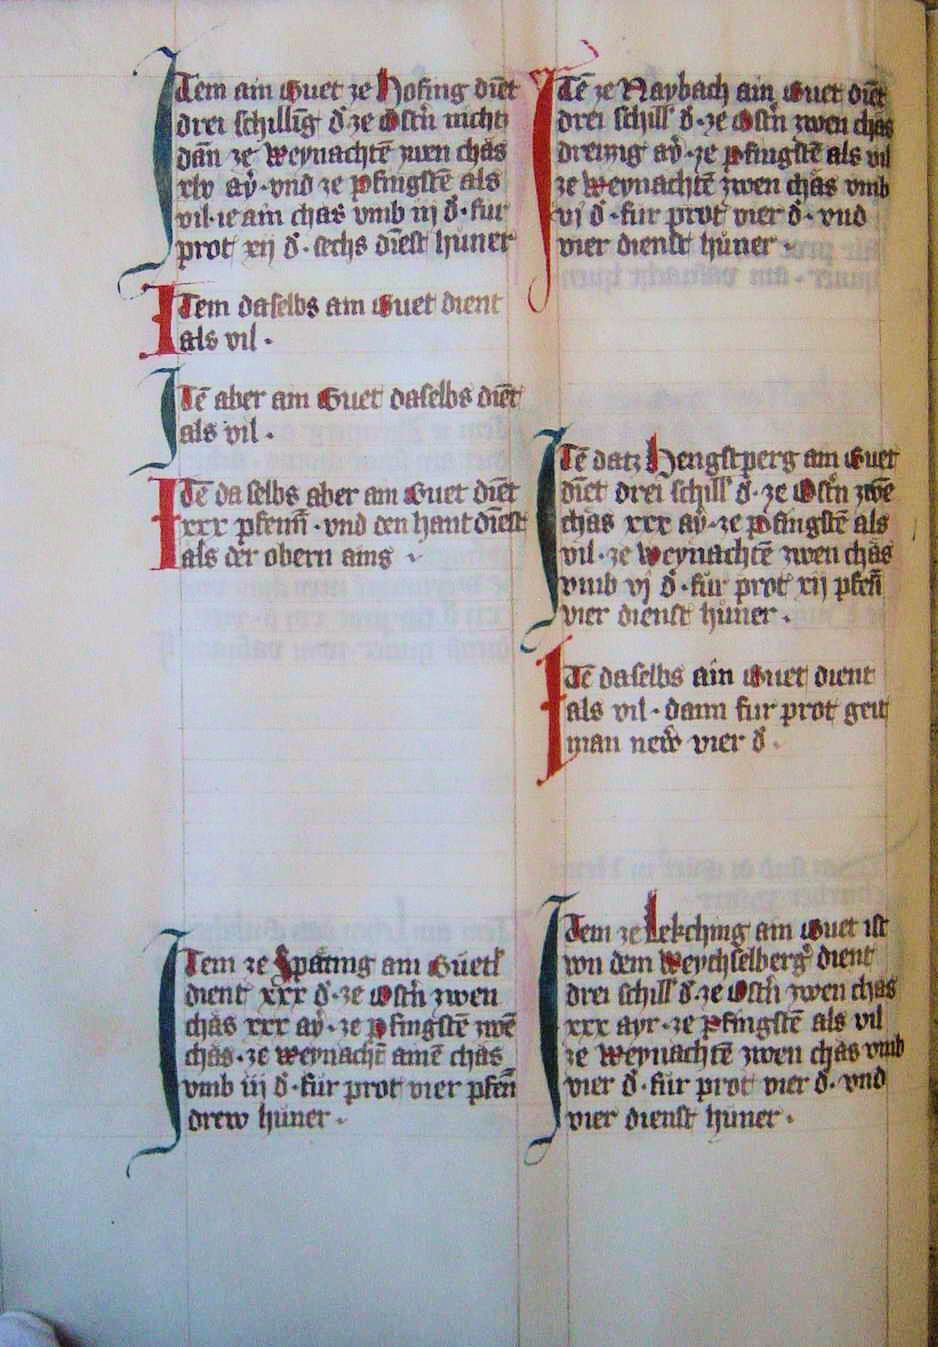 Item ain Guet ze Hofing diēt
drei schilliʒg d̄ ze Ostn̄ nicht
dan̄ ze Weynachtē zwen chas
xlv aẏ · vnd ze pfingstē als
vil · ie ain chas vmb iij d̄ · fur
prot xij d̄ · sechs diēst hůner
Item daselbs ain Guet dient
als vil ·
Itē aber ain Guet daselbs diēt
als vil ·
Itē da selbs aber ain Guet diēt
xxx pfenn̄ · vnd den hant diēst
als der obern ains
Item ze Spating ain Gůetl
dient xxx d̄ · ze Ostn̄ zwen
chäs xxx aẏ · ze pfingstē zwē
chäs · ze weynacht̄ ainē chäs
vmb iij d̄ · fůr prot vier pfen̄
drew hůner ·
Itē ze Naybach ain Guet diēt
drei schill d̄ · ze Ostn̄ zwen chäs
dreizzig aẏ · ze pfingstē als vil
ze Weynachtē zwen chäs vmb
vj d̄ · fur prot vier d̄ · vnd
vier dienst hůner ·
Itē datz Hengstperg ain Guet
diēt drei schill d̄ · ze Ostn̄ zwē
chäs xxx aẏ · ze pfingstē als
vil · ze Weynachtē zwen chäs
vmb vj d̄ · fůr prot xij pfen̄
vier dienst hůner ·
Itē daselbs ain Guet dient
als vil · dann fur prot geit
man new̄ vier d̄ ·
Item ze Lekching ain Guet ist
von dem Weychselberḡ dient
drei schill d̄ · ze Ostn̄ zwen chäs
xxx ayr · ze Pfingstē als vil
ze Weynachtē zwen chäs vmb
vier d̄ · fůr prot vier d̄ · vnd
vier dienst hůner ·